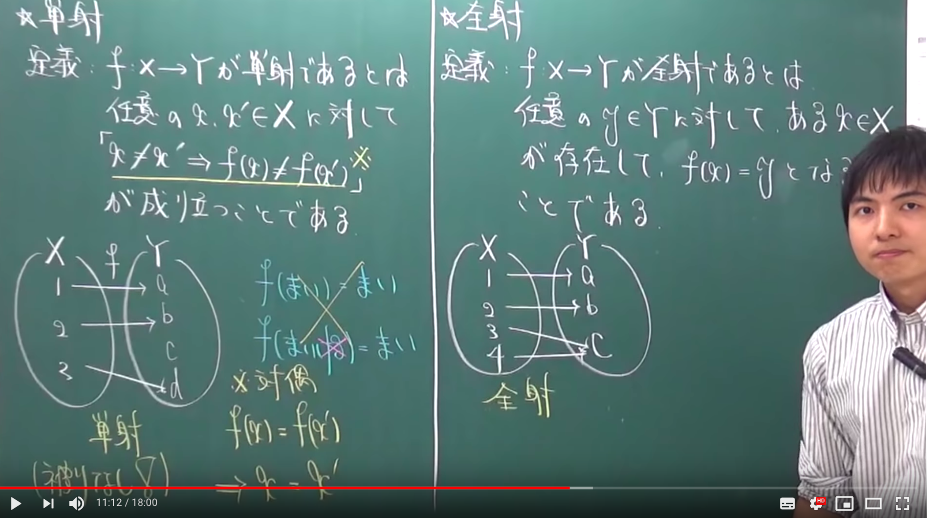 ☆単射
定義: f:X→Yが単射であるとは
任意のx, x'∈Xに対して
「x≠x' ⇒ f(x)≠f(x')」※
が成り立つことである.
X f Y
1 a
2 b
c
3 d
単射
(被りなし
f(まい)=まい
f(まい)=まい
※対偶
f(x)=f(x')
⇒ x=x'
☆全射
定義: f:X→Yが全射であるとは
任意のy∈Yに対して,あるx∈X
が存在して, f(x)=yとなる
ことである.
X Y
1 a
2 b
3
4 c
全射
11:12 / 18:00
HD